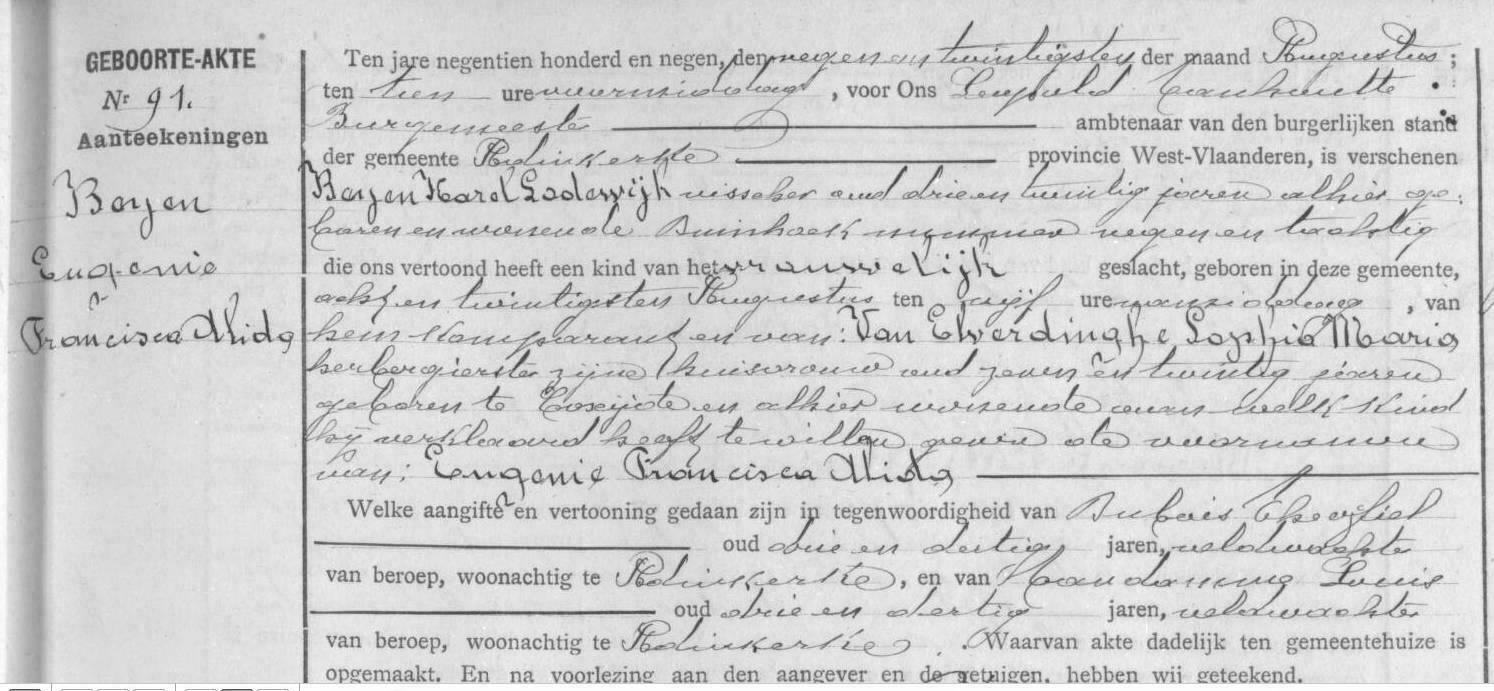 GEBOORTE-AKTE
Nr 91.
Aanteekeningen
Beyen
Eugenie
Francisca Alida
Ten jare negentien honderd en negen, den negen en twintigsten der maand Augustus ;
ten tien ure voormiddag , voor Ons Leopold
Burgemeester ambtenaar van den burgerlijken stand
der gemeente Adinkerke provincie West-Vlaanderen, is verschenen
Beyen Karel Lodewijk visscher oud drie en twintig jaren alhier ge-
boren en wonende Duinhoek nummer negen en tachtig
die ons vertoond heeft een kind van het vrouwelijk geslacht, geboren in deze gemeente,
acht en twintigsten Augustus ten vijf ure namiddag , van
hem komparant en van: Van Elverdinghe Sophia Maria
herbergierster zijne huisvrouw oud zeven en twintig jaren
geboren te Coxijde en alhier wonende aan welk kind
hij verklaard heeft te willen geven de voornamen
van: Eugenie Francisca Alida
Welke aangifte en vertooning gedaan zijn in tegenwoordigheid van Dubois Theofiel
oud drie en dertig jaren, veldwachter
van beroep, woonachtig te Adinkerke , en van Louis
oud drie en dertig jaren, veldwachter
van beroep, woonachtig te Adinkerke . Waarvan akte dadelijk ten gemeentehuize is
opgemaakt. En na voorlezing aan den aangever en de getuigen, hebben wij geteekend.